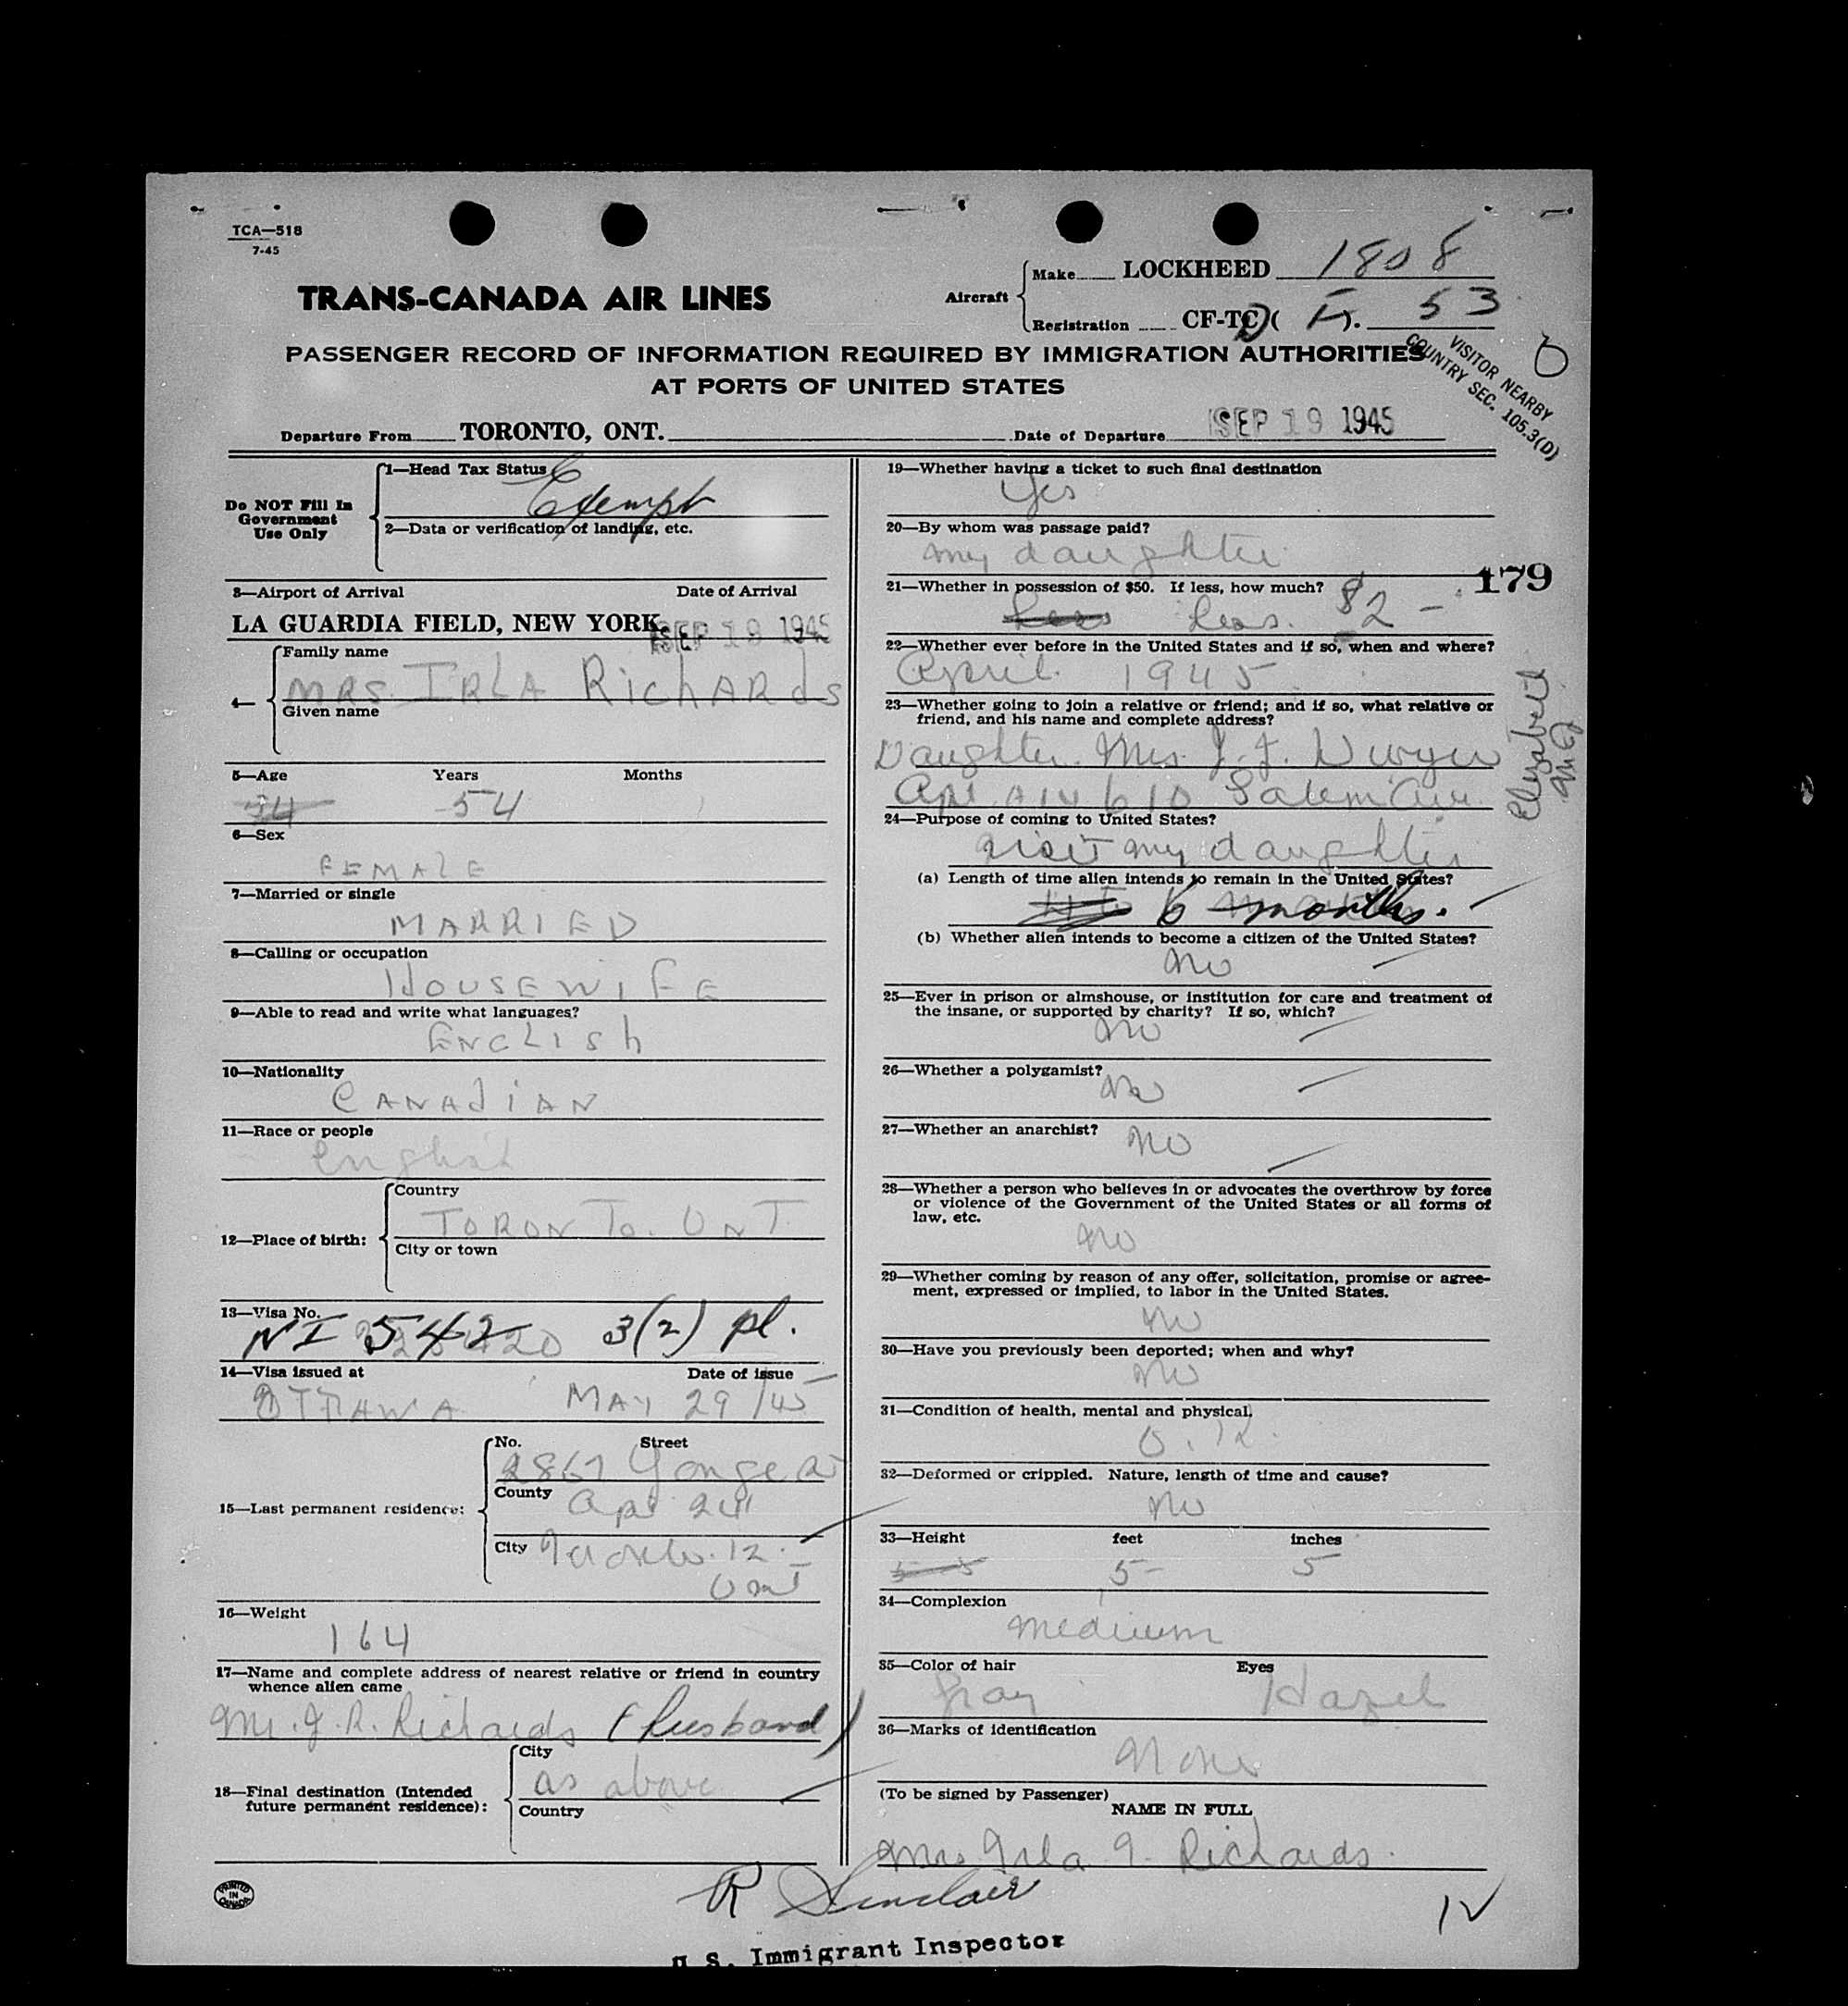 TCA—518
7-45
TRANS-CANADA AIR LINES
Aircraft
Make LOCKHEED 1808
Registration CF-TC ( ). 53
VISITOR NEARBY
COUNTRY SEC. 105.3(D)
PASSENGER RECORD OF INFORMATION REQUIRED BY IMMIGRATION AUTHORITIES
AT PORTS OF UNITED STATES
Departure From TORONTO, ONT. Date of Departure SEP 19 1945
Do NOT Fill In
Government
Use Only
1—Head Tax Status
Exempt
2—Data or verification of landing, etc.
3—Airport of Arrival Date of Arrival
LA GUARDIA FIELD, NEW YORK SEP 19 1945
4—
Family name
MRS. IRLA RichARds
Given name
5—Age Years Months
54 54
6—Sex
FEMALE
7—Married or single
MARRIED
8—Calling or occupation
HOUSEWIFE
9—Able to read and write what languages?
ENGLISh
10—Nationality
CANAdiAN
11—Race or people
English
12—Place of birth:
Country
TORONTO. ONT.
City or town
13—Visa No.
NI 542 3(2) pl.
14—Visa issued at Date of issue
OTTAWA MAY 29/45
15—Last permanent residence:
No. Street
2867 Yonge St
County
Apt 24
City Toronto. 12.
Ont
16—Weight
164
17—Name and complete address of nearest relative or friend in country
whence alien came
Mr. J. R. Richards (husband)
18—Final destination (Intended
future permanent residence):
City
as above
Country
19—Whether having a ticket to such final destination
Yes
20—By whom was passage paid?
my daughter
179
21—Whether in possession of $50. If less, how much?
Less Less. $2 –
22—Whether ever before in the United States and if so, when and where?
April 1945
23—Whether going to join a relative or friend; and if so, what relative or
friend, and his name and complete address?
Daughter. Mrs. J. J. Dwyer
Apt. A14 610 Salem Ave.
Elizabeth
N.J.
24—Purpose of coming to United States?
Visit my daughter
(a) Length of time alien intends to remain in the United States?
6 months.
(b) Whether alien intends to become a citizen of the United States?
No
25—Ever in prison or almshouse, or institution for care and treatment of
the insane, or supported by charity? If so, which?
No
26—Whether a polygamist?
No
27—Whether an anarchist?
No
28—Whether a person who believes in or advocates the overthrow by force
or violence of the Government of the United States or all forms of
law, etc.
No
29—Whether coming by reason of any offer, solicitation, promise or agree-
ment, expressed or implied, to labor in the United States.
No
30—Have you previously been deported; when and why?
No
31—Condition of health, mental and physical.
O.K.
32—Deformed or crippled. Nature, length of time and cause?
No
33—Height feet inches
5 5 5 5
34—Complexion
medium
35—Color of hair Eyes
Gray Hazel
36—Marks of identification
None
(To be signed by Passenger)
NAME IN FULL
Mrs Irla I. Richards.
PRINTED
IN
CANADA
R Sinclair
U. S. Immigrant Inspector